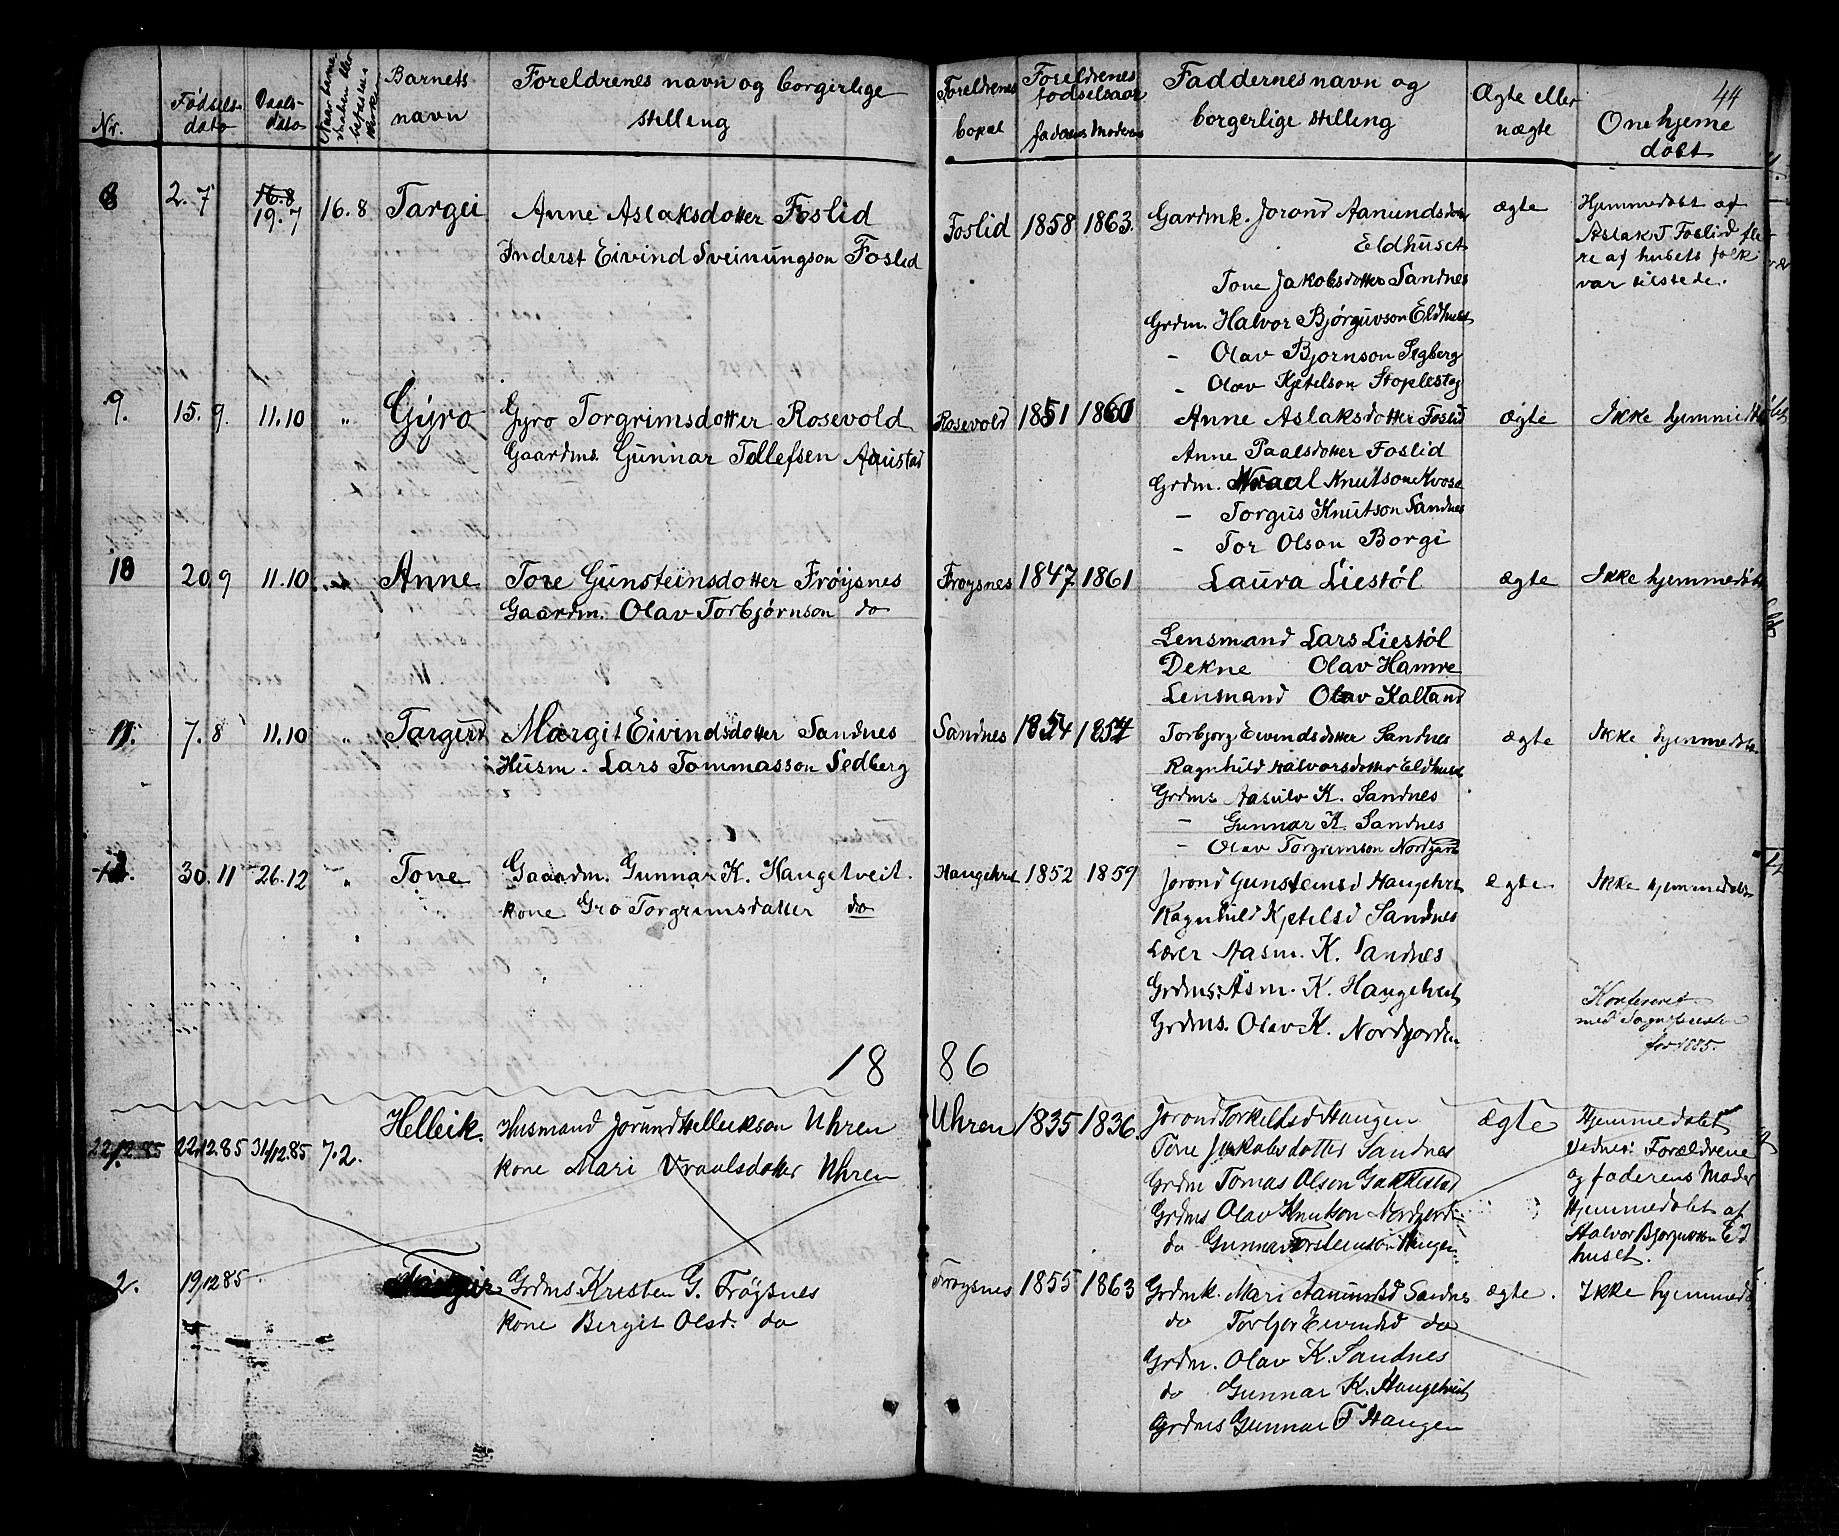 44
Nr.
Fødsels-
dato
Daabs-
dato
Barnets
navn
Foreldrenes navn og borgerlige
stilling
Foreldrenes
bopæl
Foreldrenes
fødselsaar
faderens Moderens
Faddernes navn og
borgerlige stilling
Ægte eller
uægte
Om hjeme
døbt
8 2.7 16.8 19.7 16.8 Targei
Anne Aslaksdotter Foslid
Inderst Eivind Sveinungson Foslid
Foslid 1858 1863.
Gardmk. Jorond Aanundsdotter
Eldhuset
Tone Jakobsdotter Sandnes
Grdm. Halvor Bjørguvson Eldhuset
- Olav Bjornson
- Olav Kjetelson
ægte
Hjemmedøbt af
Aslak T Foslid fle-
re af husets folk
var tilstede.
9. 15.9 11.10 " Gyro
Gyro Torgrimsdotter Rosevold
Gaardms. Gunnar Tellefsen
Rosevold 1851 1860
Anne Aslaksdotter Foslid
Anne Paalsdotter Foslid
Grdm. Knutson
- Torgus Knutson Sandnes
- Tor Olson Borgi
ægte
Ikke hjemmedøbt
10 20.9 11.10 Anne
Tore Gunsteinsdotter Frøysnes
Gaardm. Olav Torbjørnson do
Frøysnes 1847 1861
Laura Liestøl
Lensmand Lars Liestøl
Dekne Olav Hamre
Lensmand Olav Kaltand
ægte
Ikke hjemmedøbt
11. 7.8 11.10 " Targerd
Margit Eivindsdotter Sandnes
Husm. Lars Tommasson Sedberg
Sandnes 1854 1854
Torbjorg Eivindsdotter Sandnes
Ragnhild Halvorsdotter Eldhuset
Grdms. Aasulv K. Sandnes
- Gunnar K. Sandnes
- Olav Torgrimson Nordgard
ægte
Ikke hjemmedøbt
12. 30.11 26.12 " Tone
Gaardm. Gunnar K. Haugetveit.
kone Gro Torgrimsdatter do
Haugetvet 1852 1859
Jorond Gunsteinsd Haugetvet
Ragnhild Kjetelsd Sandnes
Lærer Aasm. K. Sandnes
Grdms. Asm. K. Haugetveit
Grdms. Olav K. Nordgarden
ægte
Ikke hjemmedøbt
med
for 1885.
1886
1. 22.12.85 22/12 85 31/12 85 7.2. Helleik.
Husmand Jorund Helleikson Uhren
kone Mari Vraalsdotter Uhren
Uhren 1835 1836.
Jorond Torkelsd Haugen
Tone Jakobsdotter Sandnes
Grdm Tomas Olson
Grdms Olav Knutson Nordgard
do Gunnar Torsteinson Haugen
ægte
Hjemmedøbt
Vidner: Forældrene
og faderens Moder
Hjemmedøbt af
Halvor Bjorguvson Eld
huset.
2. 19/12 85
Grdms Kristen G. Frøysnes
kone Bergit Olsd. do
Frøysnes 1855 1863
Grdmk. Mari Aanundsd Sandnes
do Torbjor Eivindsd do
Grdm. Olav K. Sandnes
do Gunnar K. Haugetveit
Grdms Gunnar T Haugen
ægte.
Ikke hjemmedø